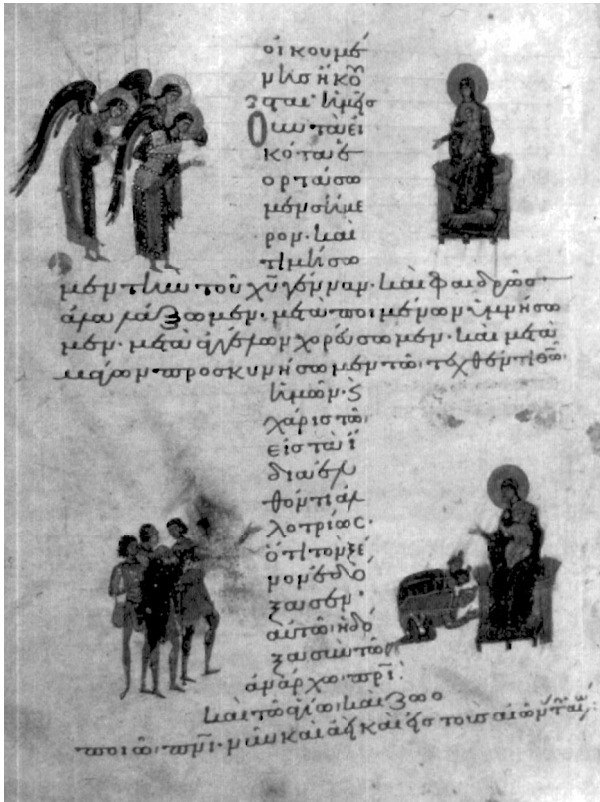 οἰκουμέ
νης
κότα ἑ
ορτάσω
μεν σήμε
ρον· καὶ
τιμήσω
μεν τὴν τοῦ χῦ γένναν· καὶ φαιδρῶς
μετὰ ποιμένων ὑμνήσω
μεν· μετὰ ἀγγέλων χορεύσωμεν· καὶ μετὰ
μάγων προσκυνήσωμεν τῷ τεχθέντι θῶ
ἡμῶν·
χαριστῶ
εἰς τὰ ἴ
δια ἐλ
θόντι ἀλ
λοτρίως·
ὅτι τὸν ξέ
νον ἐδό
ξασεν·
αὐτῷ ἡ δό
ξα σὺν τῷ
ἀνάρχω πρὶ·
καὶ τῷ ἁγίω καὶ ζωο
ποιῶ πνὶ· νῦν καὶ ἀεὶ καὶ εἰς τοὺς